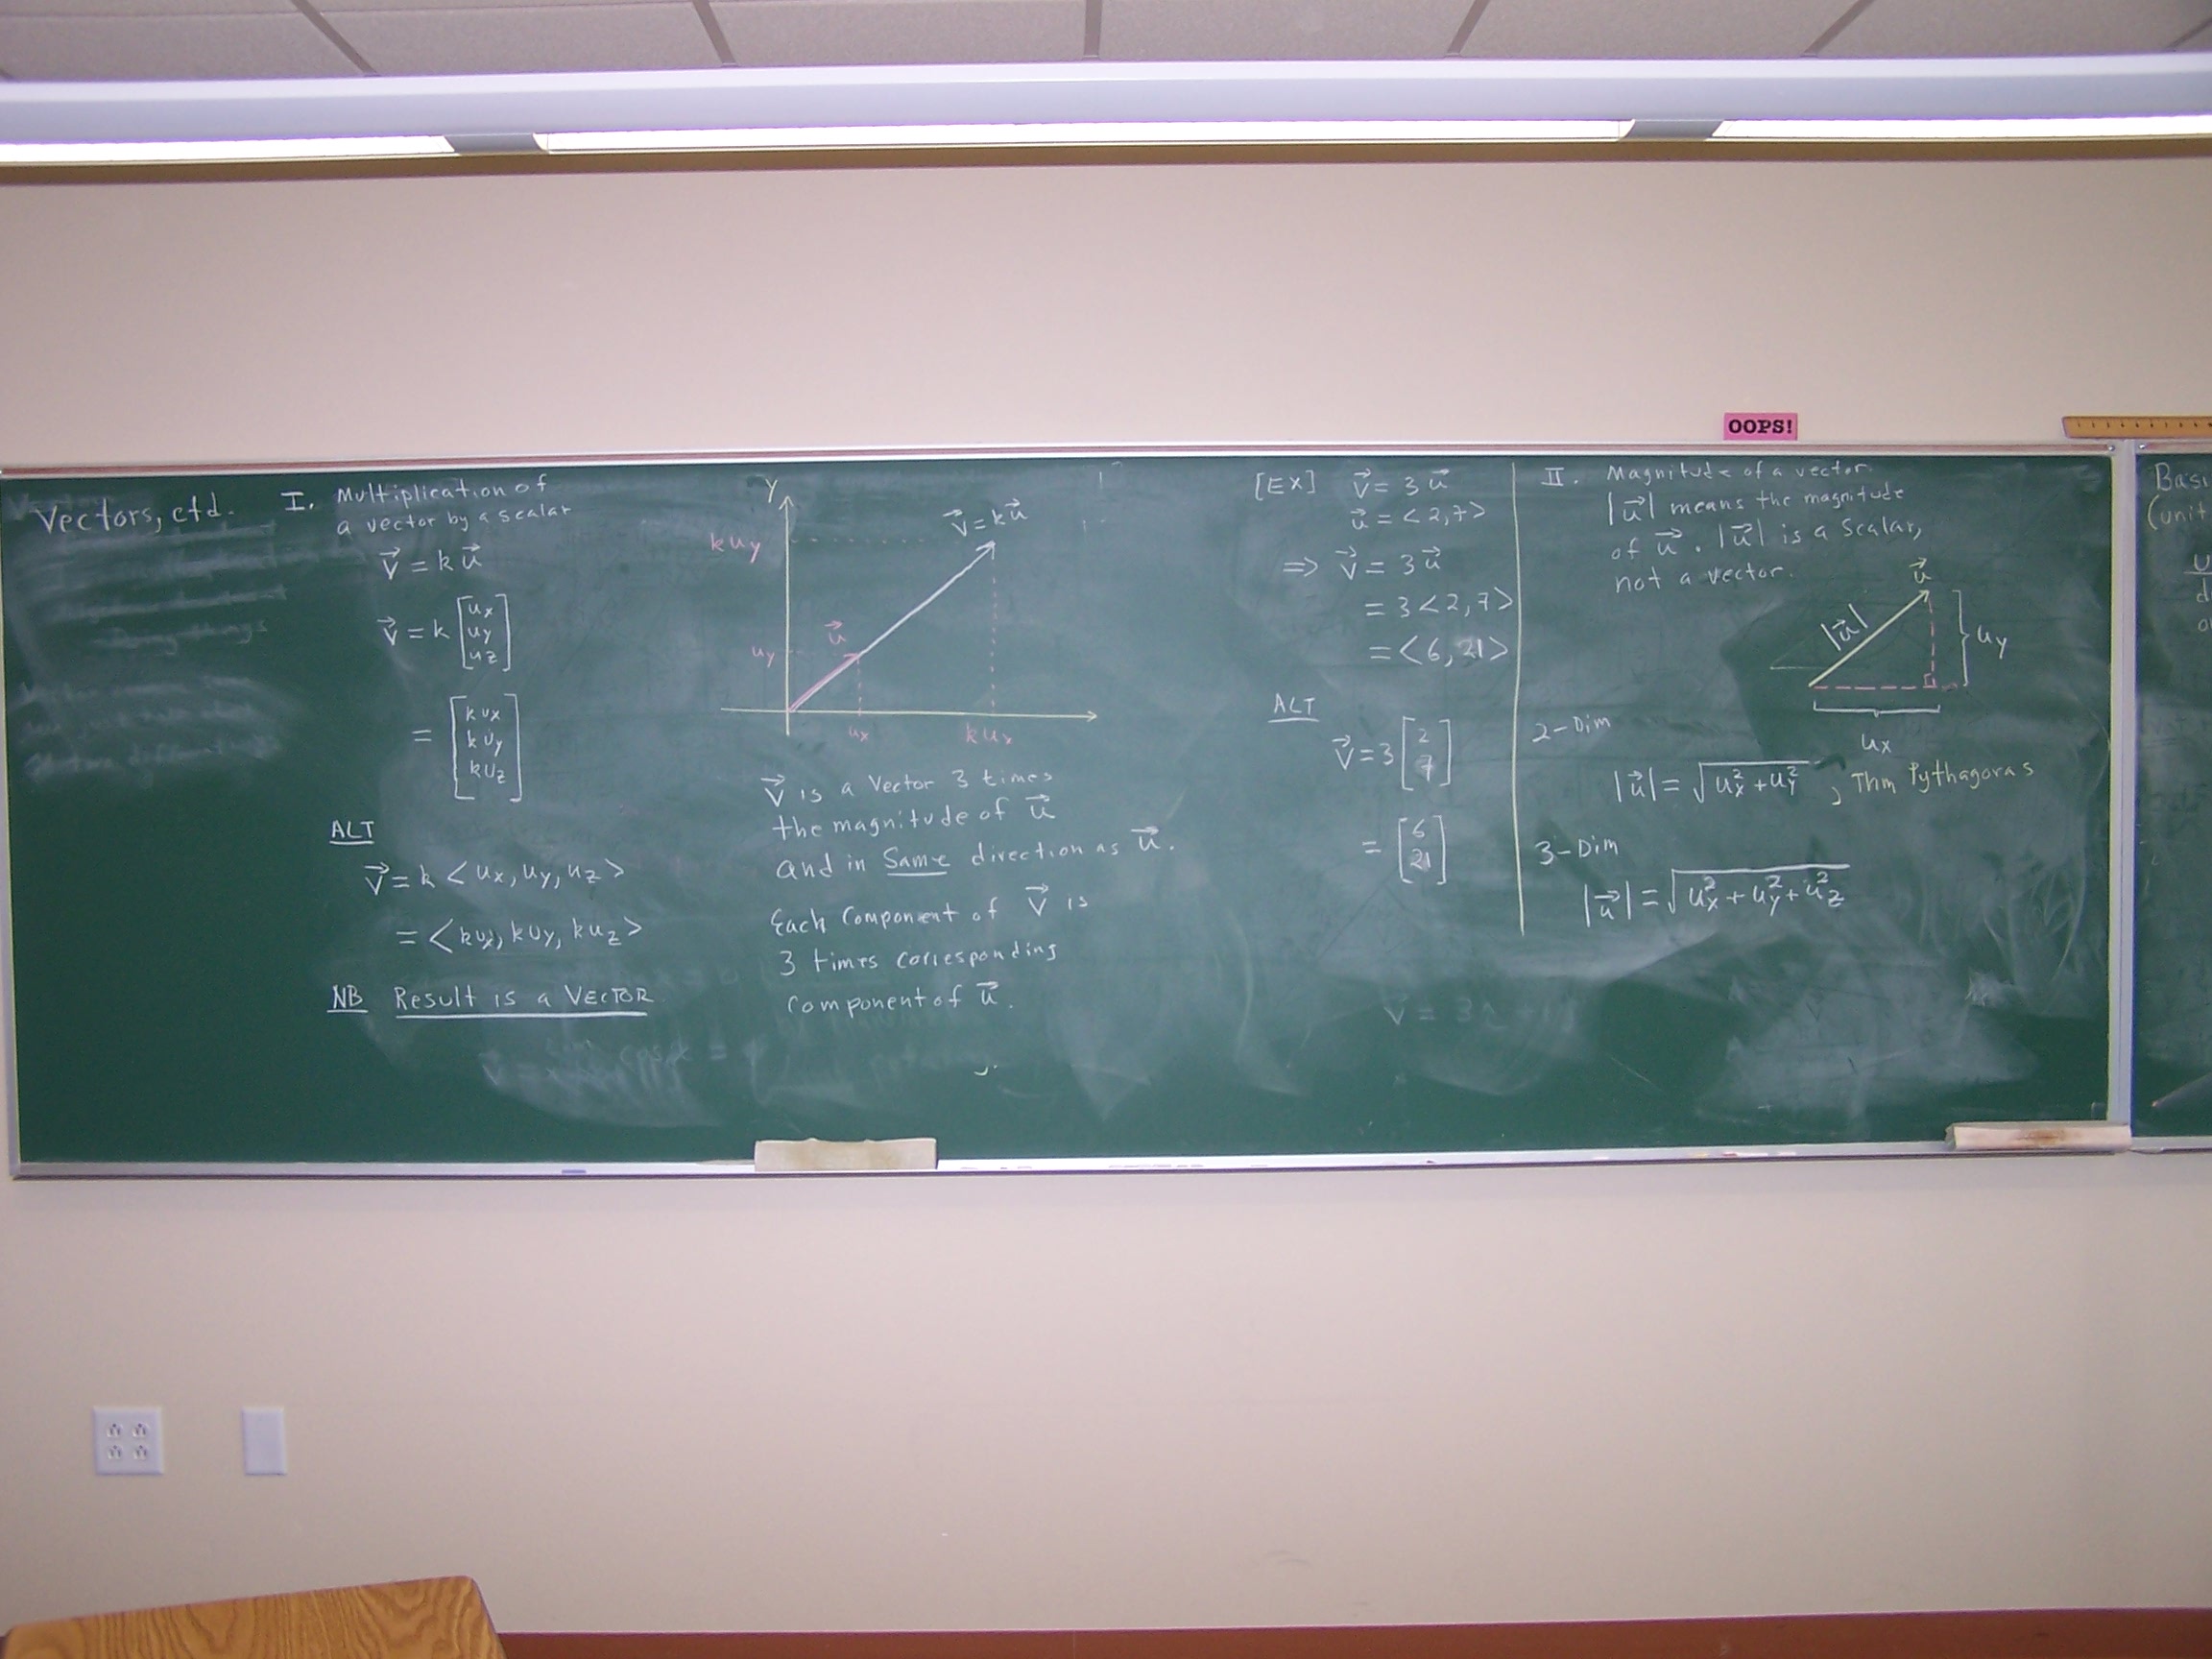 OOPS!
Vectors, ctd.
I. Multiplication of
a vector by a scalar
v⃗ = k u⃗
v⃗ = k [ux
uy
uz]
= [kux
kuy
kuz]
ALT
v⃗ = k <ux, uy, uz>
= <kux, kuy, kuz>
NB Result is a VECTOR
y
kuy
v⃗ = ku⃗
u⃗
uy
ux
kux
v⃗ is a vector 3 times
the magnitude of u⃗
and in same direction as u⃗.
Each component of v⃗ is
3 times corresponding
component of u⃗.
[EX] v⃗ = 3u⃗
u⃗ = <2,7>
⇒ v⃗ = 3u⃗
= 3<2,7>
= <6,21>
ALT
v⃗ = 3 [2
7]
= [6
21]
II. Magnitude of a vector.
|u⃗| means the magnitude
of u⃗. |u⃗| is a scalar,
not a vector.
u⃗
|u⃗|
uy
ux
2-Dim
|u⃗| = √(ux² + uy²), Thm Pythagoras
3-Dim
|u⃗| = √(ux² + uy² + uz²)
Basi
(unit